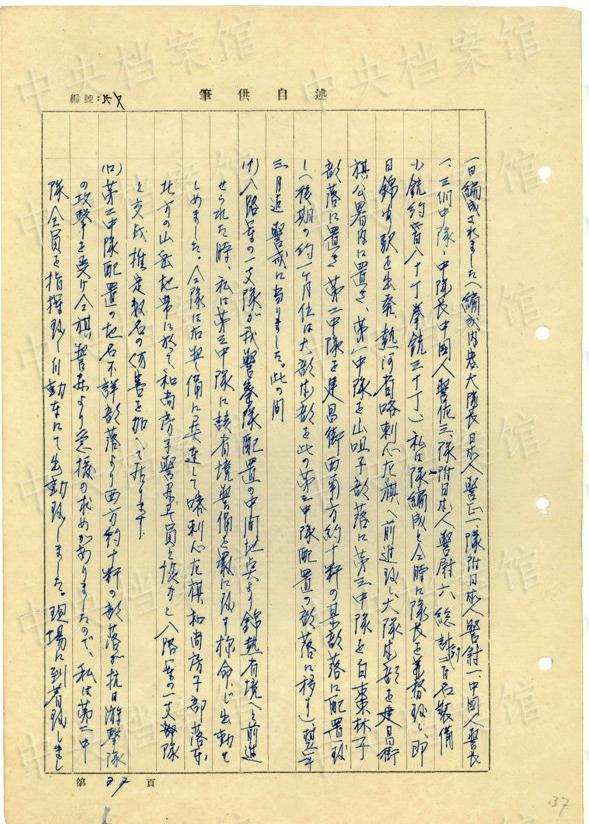 編號:
筆供自述
一日編成されました(編成内容大隊長日本人警正一、隊附日本人警尉一、中国人警長
一、三個中隊、中隊長中国人警佐三、隊附日本人警尉六、総計約三百名装備
小銃約百八十丁拳銃三十丁)私は隊編成と仝時に隊長を兼務致し即
日錦州駅を出発、熱河省喀喇心左旗へ前進致し大隊本部を建昌街
旗公署内に置き、第一中隊を山咀子部落に第三中隊を白棗林子
部落に置き第二中隊を建昌街西南方約十粁の某部落に配置致
し(後期の約一ケ月位は大隊本部を此の第二中隊配置の部落に移す)翌年
三月迄警戒に当りました。此の間
(イ)八路軍の一支隊が我警察隊配置の中間地点より錦熱省境へと前進
せられた時、私は第三中隊に該省境警備を厳に致す様命じ出動せ
しめました。仝隊は右警備に して喀喇心左旗和尚房子部落東
北方の山岳地帯に於て和尚房子警察 員と協力し八路軍の一支部隊
と交戦推定数名の傷害を加へて居ります.
(ロ)第二中隊配置の地名不詳部落より西方約十粁の部落が抗日游撃隊
の攻撃を受け仝旗警務科より応援の求めがありましたので、私は第二中
隊全員を指揮致し自動車にて出動致しました。現場に到着致しまし
第37頁
137
中央档案馆